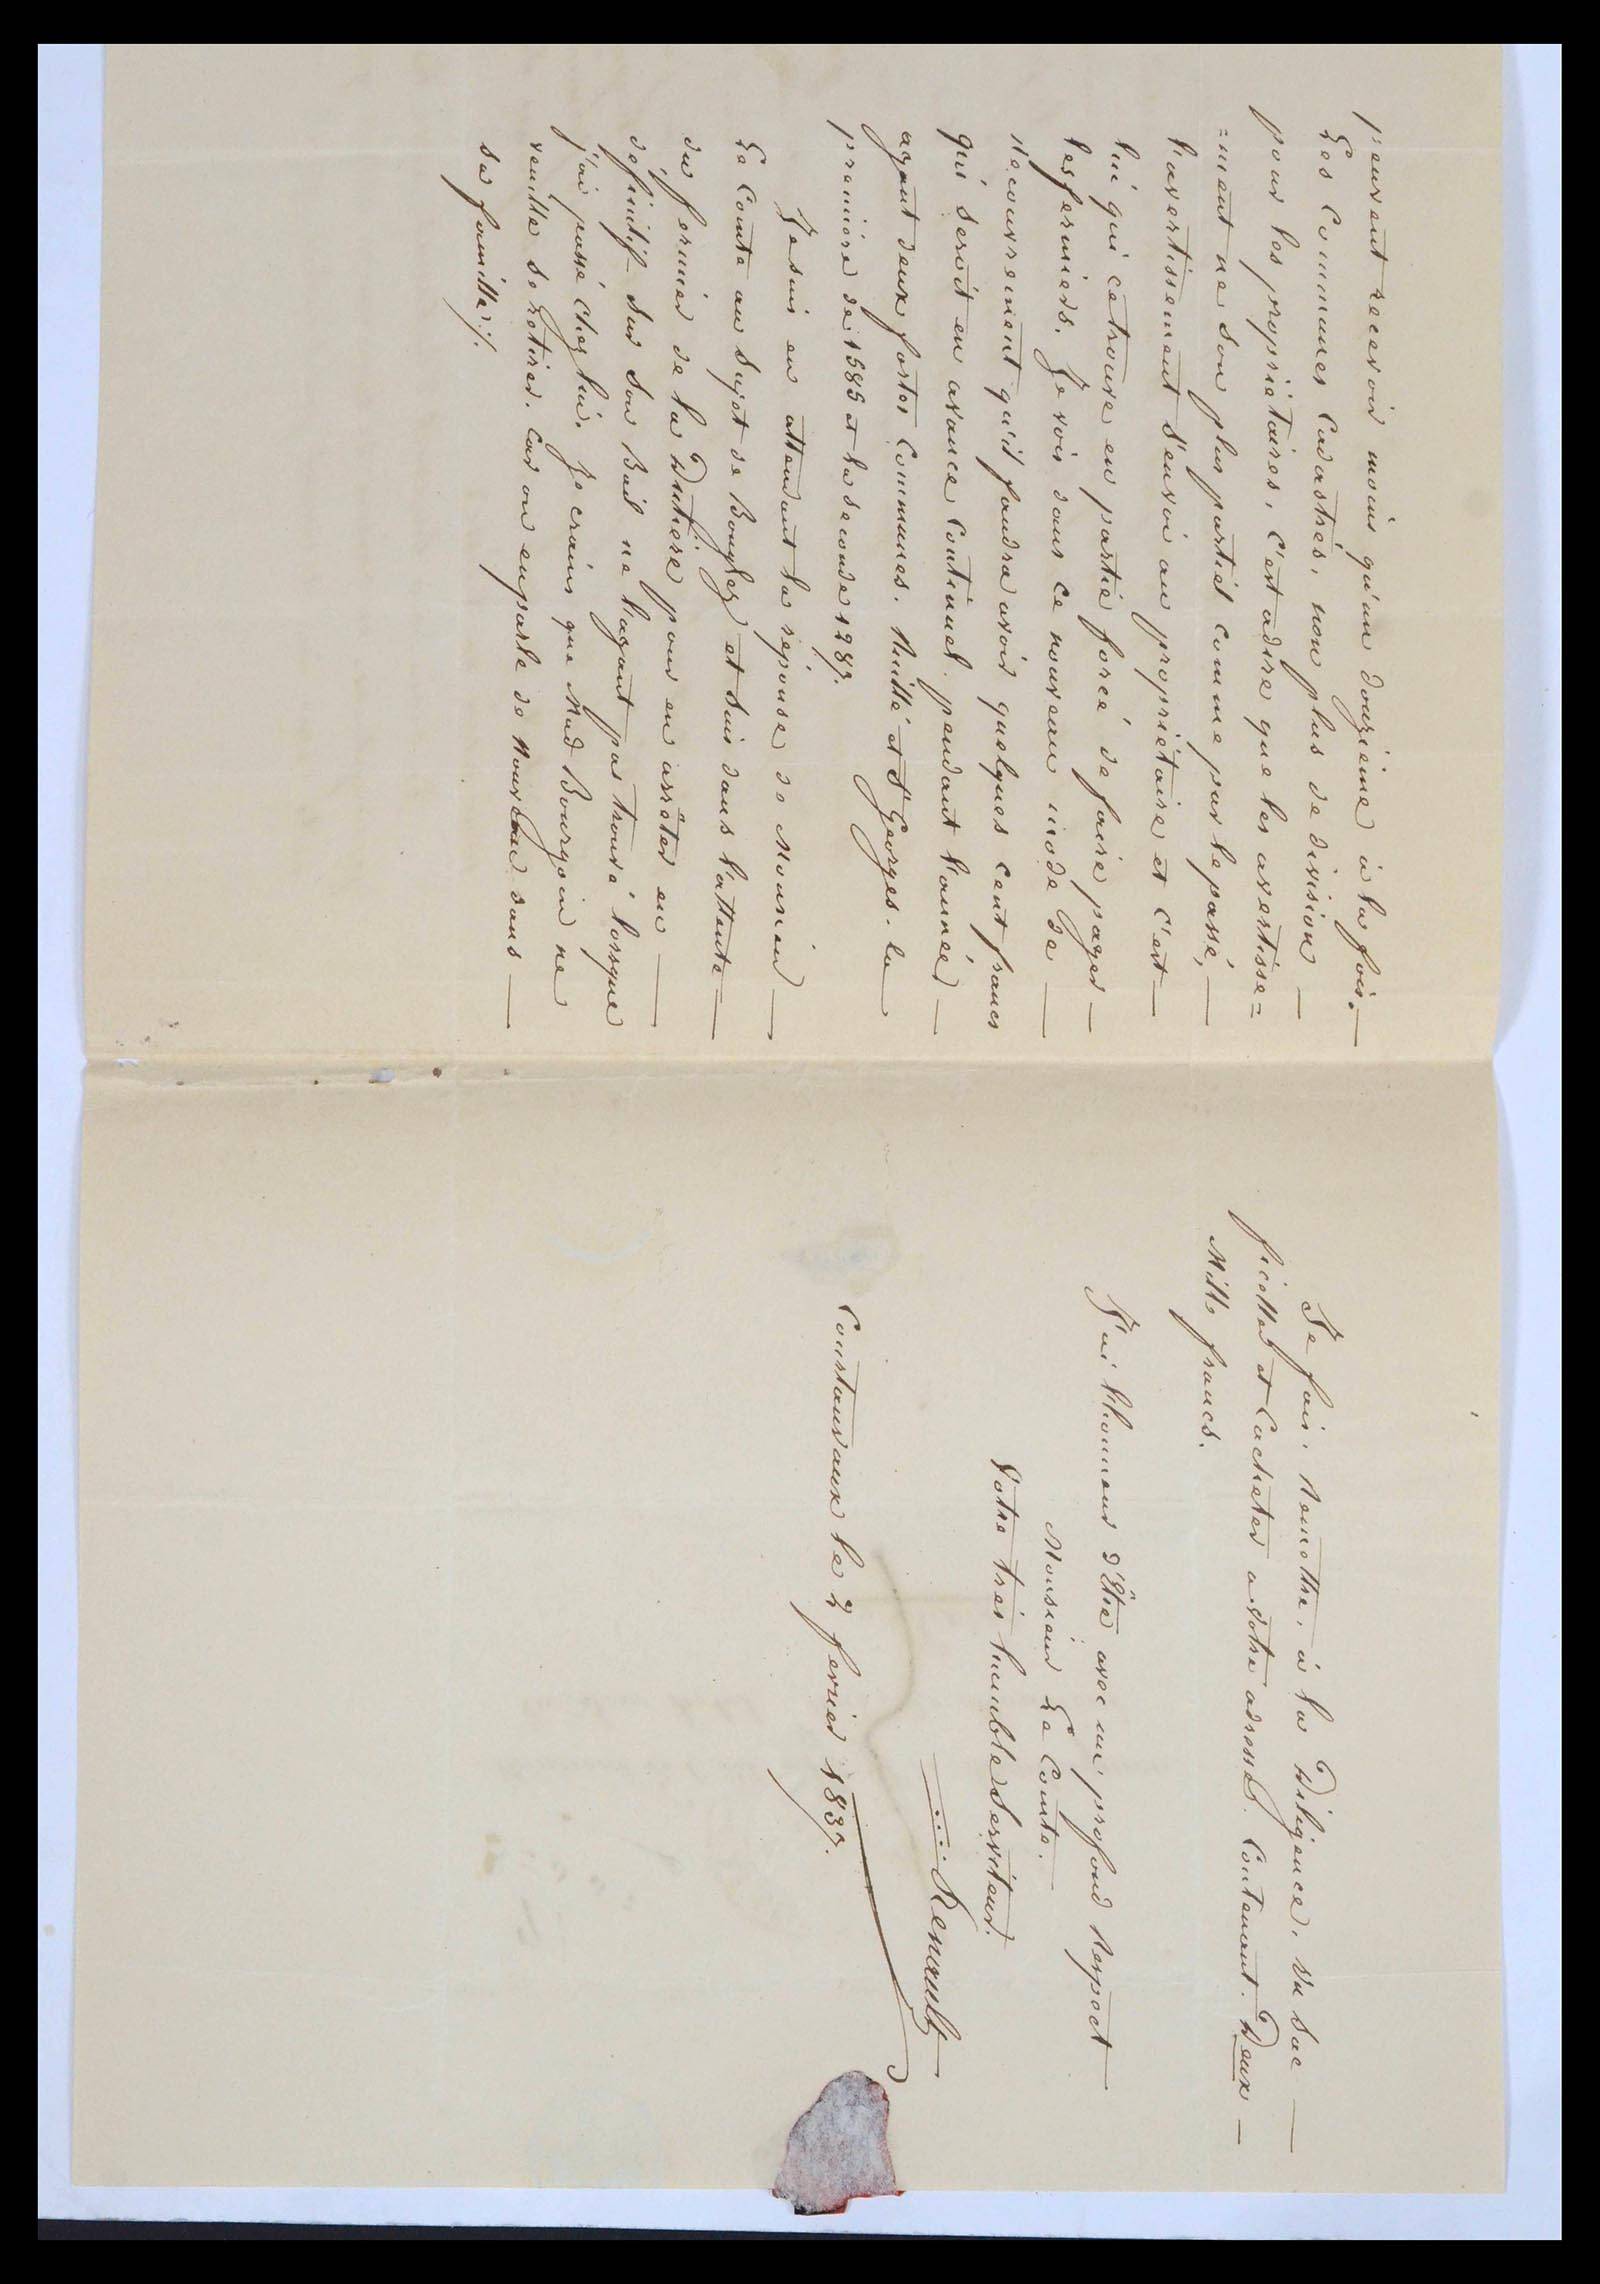 peuvent recevoir moins qu'un douzième à la fois. —
Les Communes Cadastrés, non plus de division —
pour les propriétaires, C'est adire que les avertisse=
=ment ne son plus partiét comme par le passé, —
l'avertissement s'envoi au propriétaire et C'est —
lui qui ce trouve en partie forcé de faire payer —
les fermiers. Je vois dans ce nouveau mode de —
Recouvrement qu'il faudra avoir quelques cent francs
qui seroit en avance Continuel. pendant l'année —
ayant deux fortes Communes. Ruillé et St Georges. la —
premiere de 1585 et la seconde 1287.
Je suis en attendant la réponse de Monsieur —
Le Comte au Sujet de Bouglez et suis dans l'attente —
du fermier de la pour en arrêter en —
définitif Sur Son Bail ne l'ayant pas trouvé lorsque
j'ai passé Chez lui. Je crains que Mad Bourgoin ne
veuille se retirer. Car on en parle de Nouveau dans —
sa famille ./.
Je fais. Remettre. à la Diligence. un Sac —
ficellet et Cacheter a votre adresse. Contenant. Deux —
Mille francs.
J'ai l'honneur d'Etre avec un profond Respect —
Monsieur Le Comte. —
Votre très humble Serviteur.
Renault
Coustauvaux le 2 fevrier 1837.